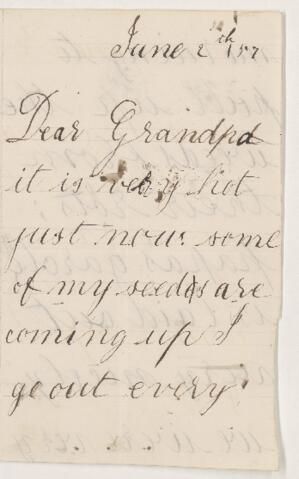 June 2th 157
Dear Grandpa
it is very hot
just now. some
of my seeds are
coming up I
go out every